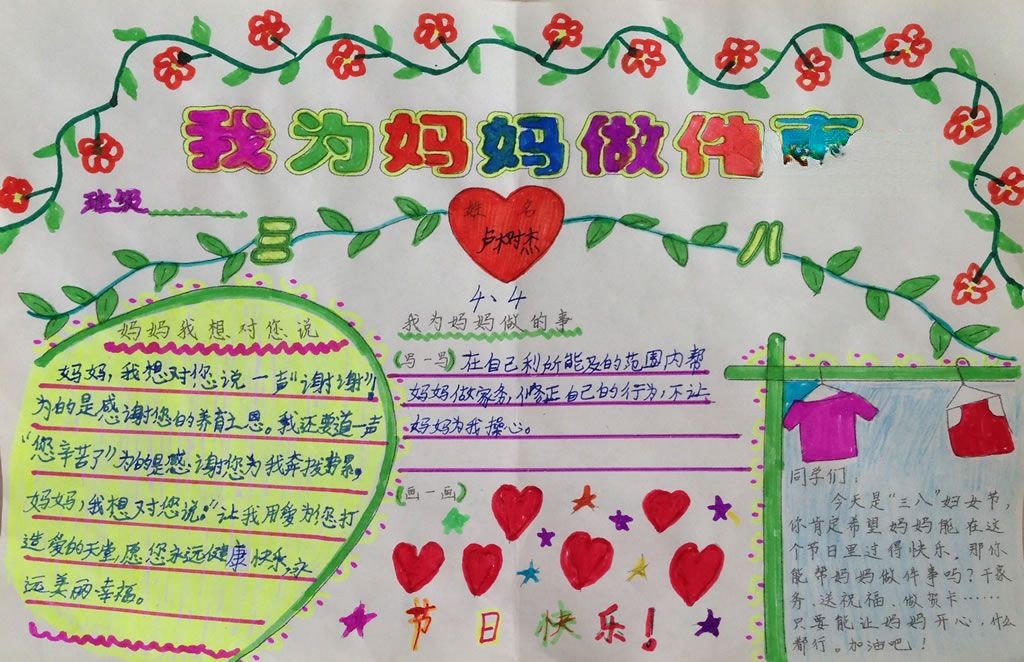 我为妈妈做件
班级
三 八
姓 名
卢树杰
4、4
妈妈我想对您说
妈妈,我想对您说一声“谢谢”!
为的是感谢您的养育之恩。我还要道一声
“您辛苦了”为的是感谢您为我奔波劳累,
妈妈,我想对您说:“让我用爱为您打
造爱的天堂,愿您永远健康快乐,永
远美丽幸福。
我为妈妈做的事
(写一写)在自己利所能及的范围内帮
妈妈做家务,修正自己的行为,不让
妈妈为我操心。
(画一画)
节日快乐!
同学们:
今天是“三八”妇女节,
你肯定希望妈妈能在这
个节日里过得快乐。那你
能帮妈妈做件事吗?干家
务、送祝福、做贺卡……
只要能让妈妈开心,什么
都行。加油吧!